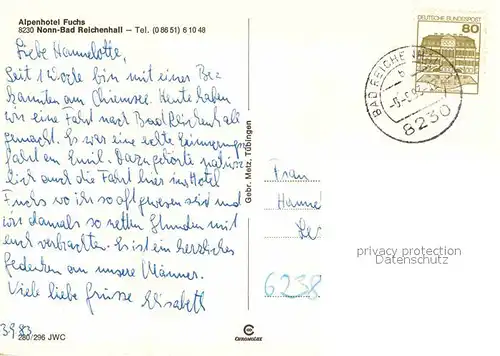 Alpenhotel Fuchs
8230 Nonn-Bad Reichenhall – Tel. (0 86 51) 6 10 48
Liebe Hannelotte,
Seit 1 Woche bin mit einer Be-
kannten am Chiemsee. Heute haben
wir eine Fahrt nach Bad Reichenhall
gemacht. Es war eine echte Erinnerungs-
fahrt an Emil. Dazu gehörte natür-
lich auch die Fahrt hier ins Hotel
Fuchs wo ihr so oft gewesen seid und
wir damals so netten Stunden mit
euch verbrachten. Es ist ein herzliches
Gedenken an unsere Männer.
Viele liebe Grüsse Elisabeth
280/296 JWC
Gebr. Metz, Tübingen
CHROMOLUX
DEUTSCHE BUNDESPOST
80
BAD REICHENHALL
b
8230
Frau
Hanne
Le
6238
privacy protection
Datenschutz